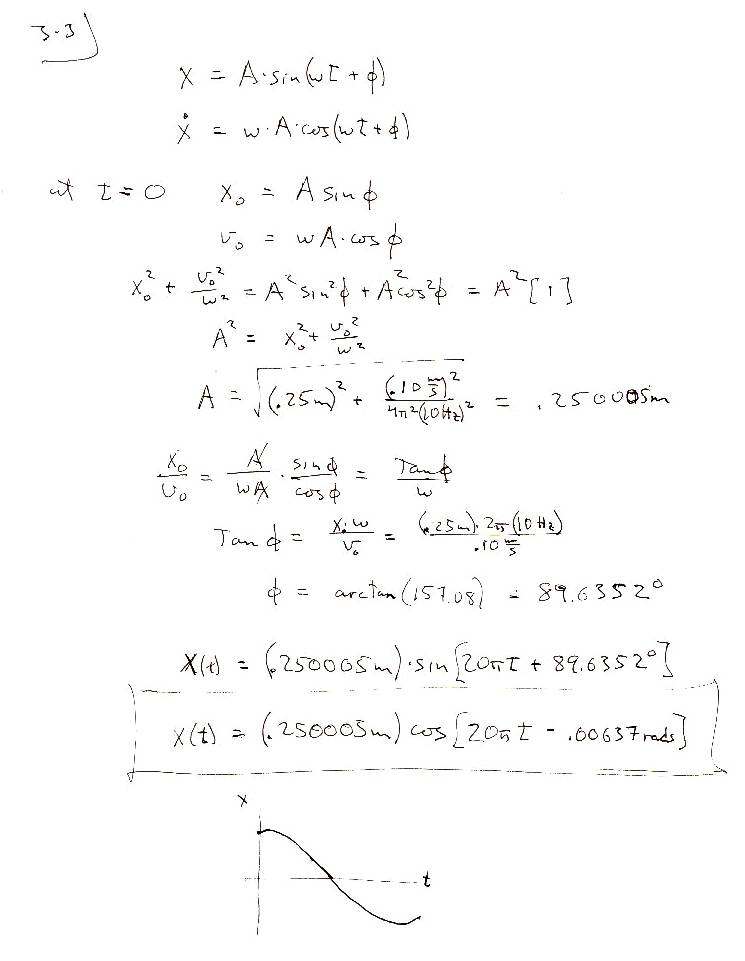 3-3
x = A·sin(ωt + ϕ)
ẋ = ω·A·cos(ωt + ϕ)
at t = 0 x₀ = A sin ϕ
v₀ = ωA·cos ϕ
x₀² + v₀²/ω² = A² sin²ϕ + A² cos²ϕ = A² [1]
A² = x₀² + v₀²/ω²
A = √((.25m)² + (.10 m/s)²/4π²(10Hz)²) = .250005m
x₀/v₀ = A/ωA · sinϕ/cosϕ = Tanϕ/ω
Tan ϕ = x₀ω/v₀ = (.25m)·2π(10 Hz)/.10 m/s
ϕ = arctan(157.08) = 89.6352°
X(t) = (.250005m)·sin[20πt + 89.6352°]
X(t) = (.250005m) cos[20πt - .00637rads]
x
t